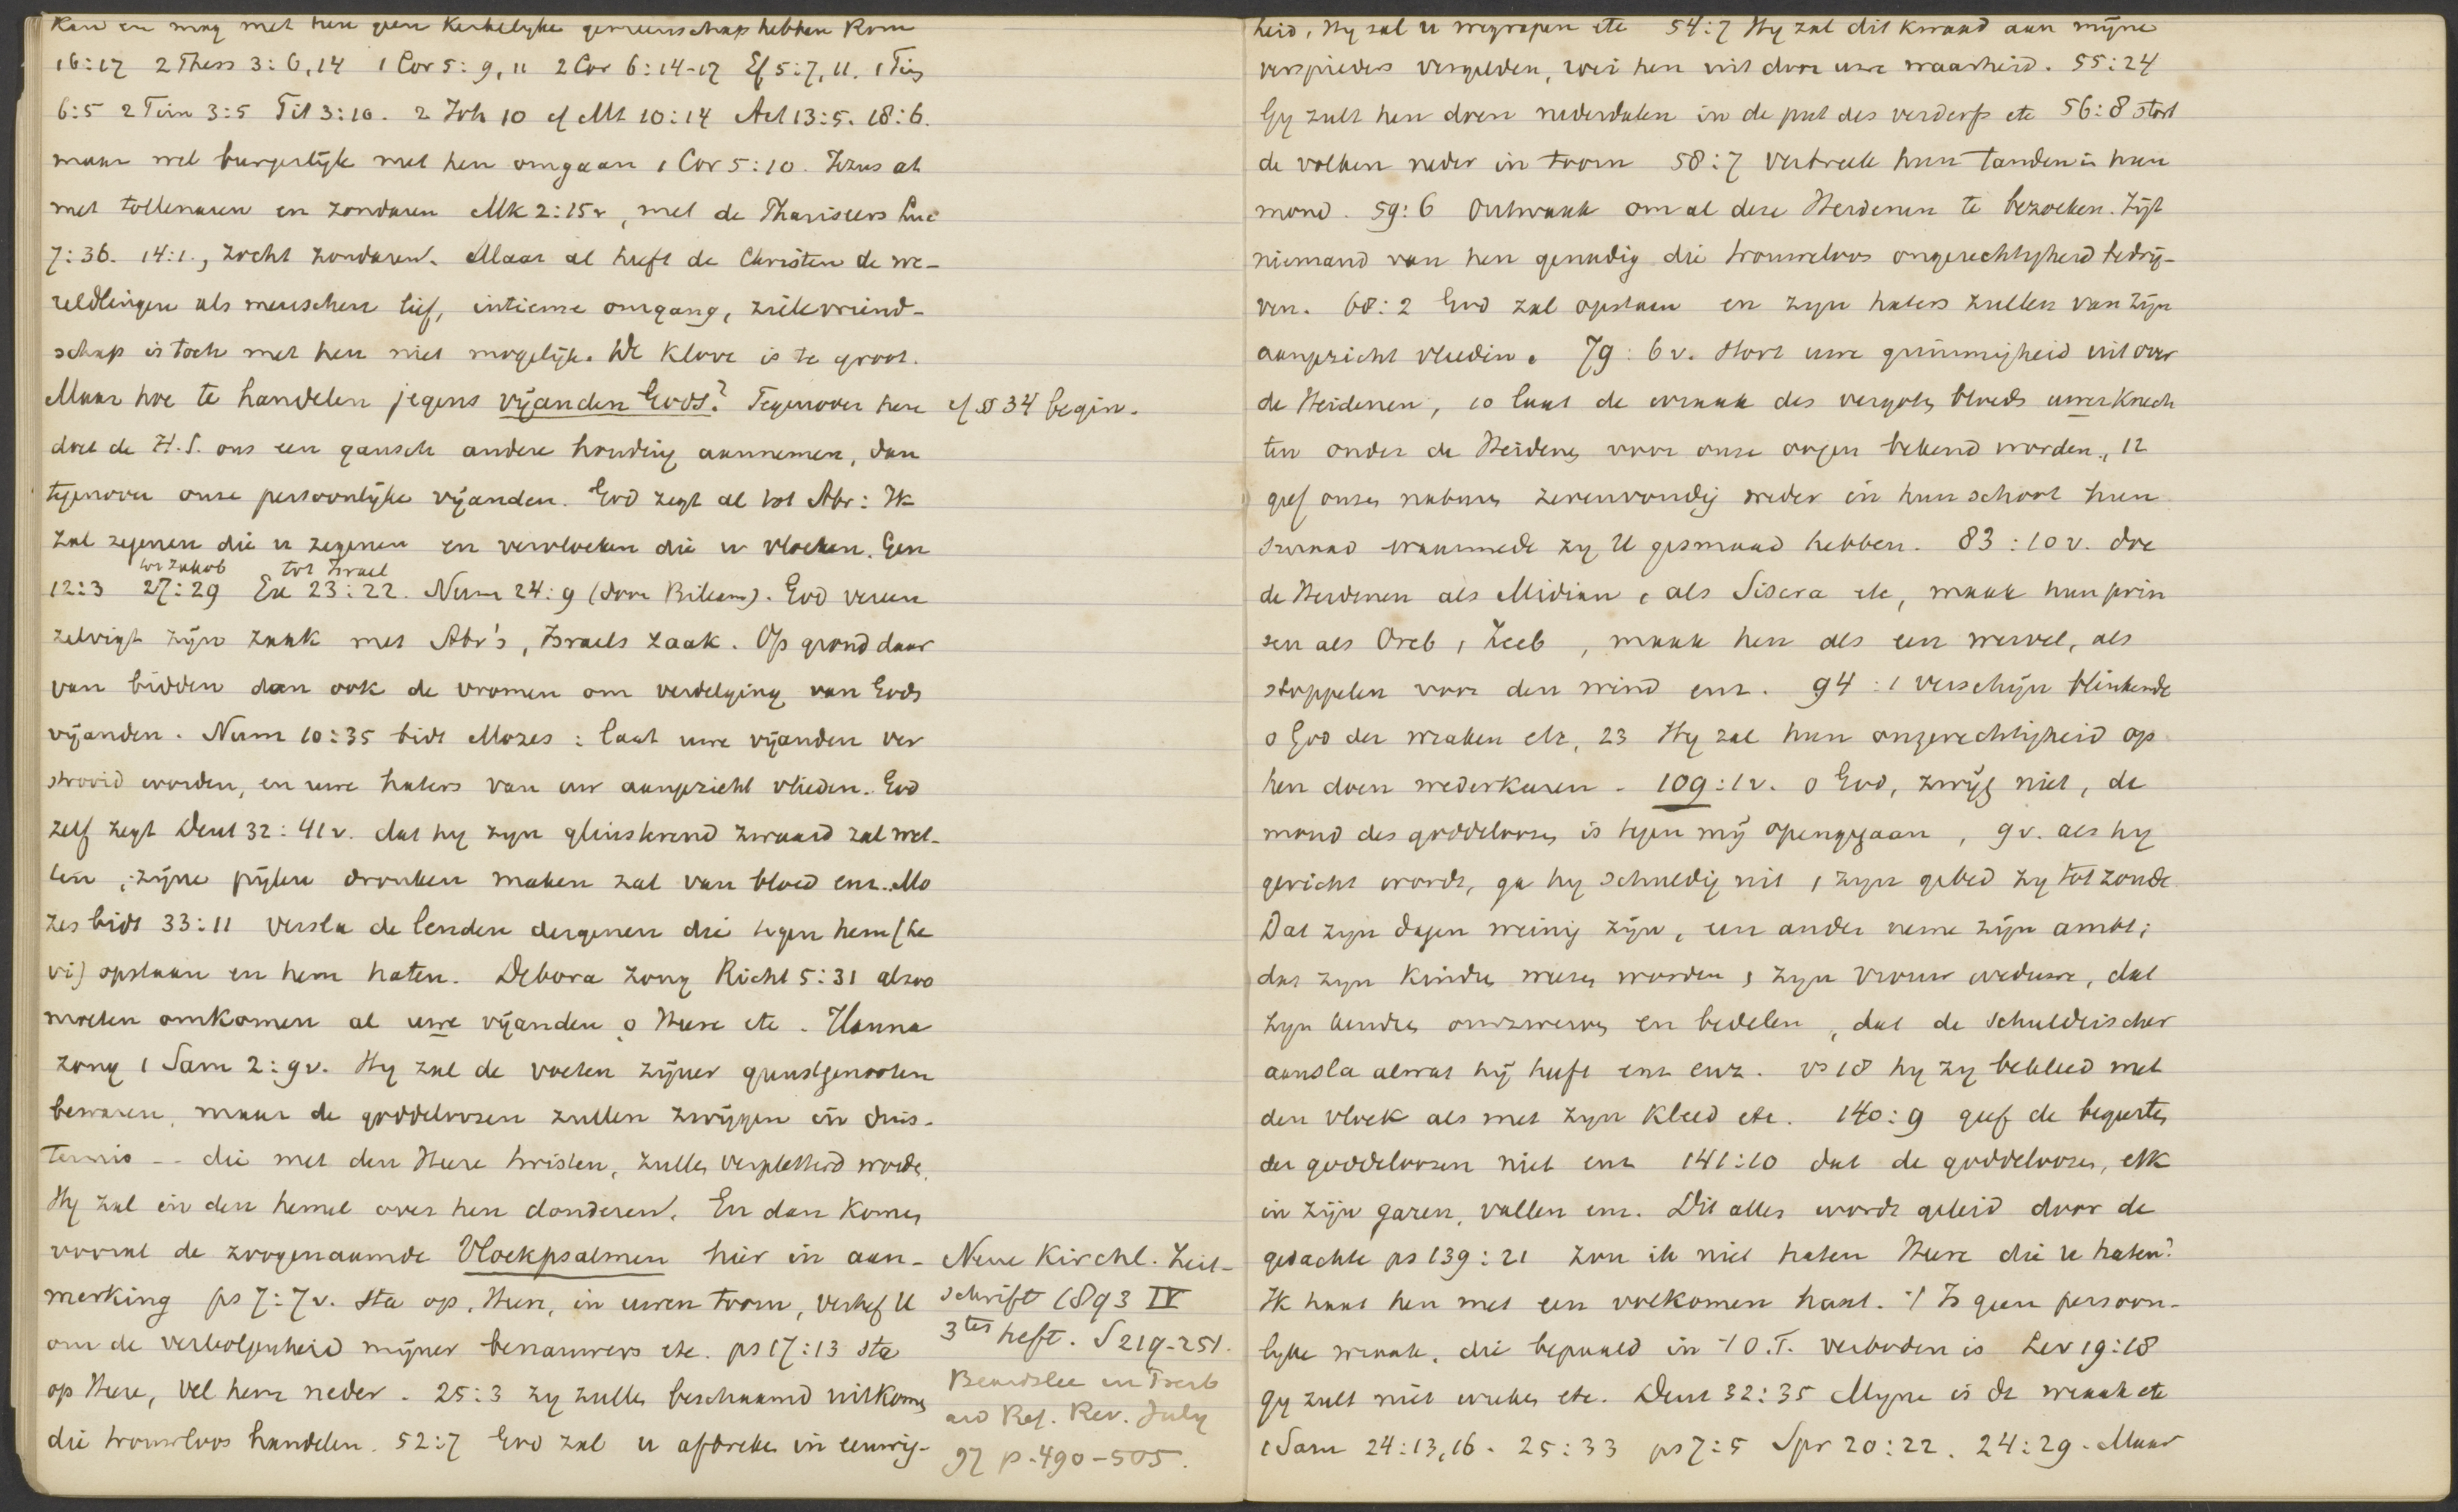 Kan en mag met hen geen Kerkelyke gemeenschap hebben Rom
16:17 2 Thess 3:6,14 1 Cor 5:9,11 2 Cor 6:14-17 Ef 5:7,11. 1 Tim
6:5 2 Tim 3:5 Tit 3:10. 2 Joh 10 cf Mt 10:14 Act 13:5. 18:6.
maar wel burgerlijk met hen omgaan 1 Cor 5:10. Jezus at
met tollenaren en zondaren Mk 2:15v, met de Phariseers Luc
7:36. 14:1., zocht zondaren. Maar al heeft de Christen de we-
reldlingen als menschen lief, intieme omgang, zielevriend-
schap is toch met hen niet mogelijk. De Klove is te groot.
Maar hoe te handelen jegens vijanden Gods? Tegenover hen
cf § 34 begin.
doet de H.S. ons een gansch andere houding aannemen, dan
tegenover onze persoonlijke vijanden. God zegt al tot Abr: Ik
zal zegenen die u zegenen en vervloeken die u vloeken. Gen
tot Jakob tot Israel
12:3 27:29 Ex 23:22. Num 24:9 (door Bileam). God vereen
zelvigt zijn zaak met Abr's, Israels zaak. Op grond daar
van bidden dan ook de vromen om verdelging van Gods
vijanden. Num 10:35 bidt Mozes: laat uwe vijanden ver
strooid worden, en uwe haters van uw aangezicht vlieden. God
zelf zegt Deut 32:41v. dat hy zyn glinsterend zwaard zal wet-
ten, zijne pijlen dronken maken zal van bloed enz. Mo
zes bidt 33:11 versla de lenden dergenen die tegen hem (Le
vi) opstaan en hem haten. Debora zong Richt 5:31 alzoo
moeten omkomen al uwe vijanden o Heere etc. Hanna
zong 1 Sam 2:9v. Hy zal de voeten zijner gunstgenooten
bewaren, maar de goddeloozen zullen zwijgen in duis-
ternis -- die met den Heere twisten, zullen verpletterd worden,
Hy zal in den hemel over hen donderen. En dan komen
vooral de zoogenaamde Vloekpsalmen hier in aan-
merking ps 7:7v. sta op, Heere, in uwen toorn, verhef U
om de verbolgenheid mijner benauwers etc. ps 17:13 sta
op Heere, vel hem neder. 25:3 zy zullen beschaamd uitkomen
die trouweloos handelen. 52:7 God zal u afbreken in eeuwig-
Neue Kirchl. Zeit-
schrift 1893 IV
3tes heft. S 219-251.
Beardslee in Presb
and Ref. Rev. July
97 p. 490-505.
heid, Hy zal u wegrapen etc 54:7 Hy zal dit kwaad aan mijne
verspieders vergelden, roei hen uit door uwe waarheid. 55:24
Gy zult hen doen nederdalen in de put des verderfs etc 56:8 stort
de volken neder in toorn 58:7 verbreek hun tanden in hun
mond. 59:6 Ontwaak om al deze Heidenen te bezoeken. Zijt
niemand van hen genadig die trouweloos ongerechtigheid bedrij-
ven. 68:2 God zal opstaan en zyn haters zullen van zijn
aangezicht vlieden. 79:6v. stort uwe grimmigheid uit over
de Heidenen, 10 laat de wraak des vergoten bloeds uwer Knech
ten onder de Heidenen voor onze oogen bekend worden, 12
geef onzen naburen zevenvoudig weder in hun schoot hun
smaad waarmede zy U gesmaad hebben. 83:10v. doe
de Heidenen als Midian, als Sisera etc, maak hun prin
sen als Oreb, Zeeb, maak hen als een wervel, als
stoppelen voor den wind enz. 94:1 verschijn blinkende
o God der wraken etc, 23 Hy zal hun ongerechtigheid op
hen doen wederkeeren. 109:1v. o God, zwijg niet, de
mond des goddeloozen is tegen mij opengegaan, 9v. als hy
gericht wordt, ga hy schuldig uit, zyn gebed zy tot zonde.
Dat zyn dagen weinig zijn, een ander neme zijn ambt;
dat zyn Kinderen weezen worden, zyn vrouw weduwe, dat
zyn kinderen omzwerven en bedelen, dat de schuldeischer
aansla alwat hij heeft enz enz. vs 18 hy zy bekleed met
den vloek als met zyn Kleed etc. 140:9 geef de begeerten
der goddeloozen niet enz 141:10 dat de goddeloozen, elk
in zijn garen, vallen enz. Dit alles wordt geleid door de
gedachte ps 139:21 zou ik niet haten Heere die u haten?
Ik haat hen met een volkomen haat. 't Is geen persoon-
lyke wraak, die bepaald in 't O.T. verboden is Lev 19:18
gy zult niet wreken etc. Deut 32:35 Myne is de wraak etc
1 Sam 24:13,16. 25:33 ps 7:5 Spr 20:22. 24:29. Maar